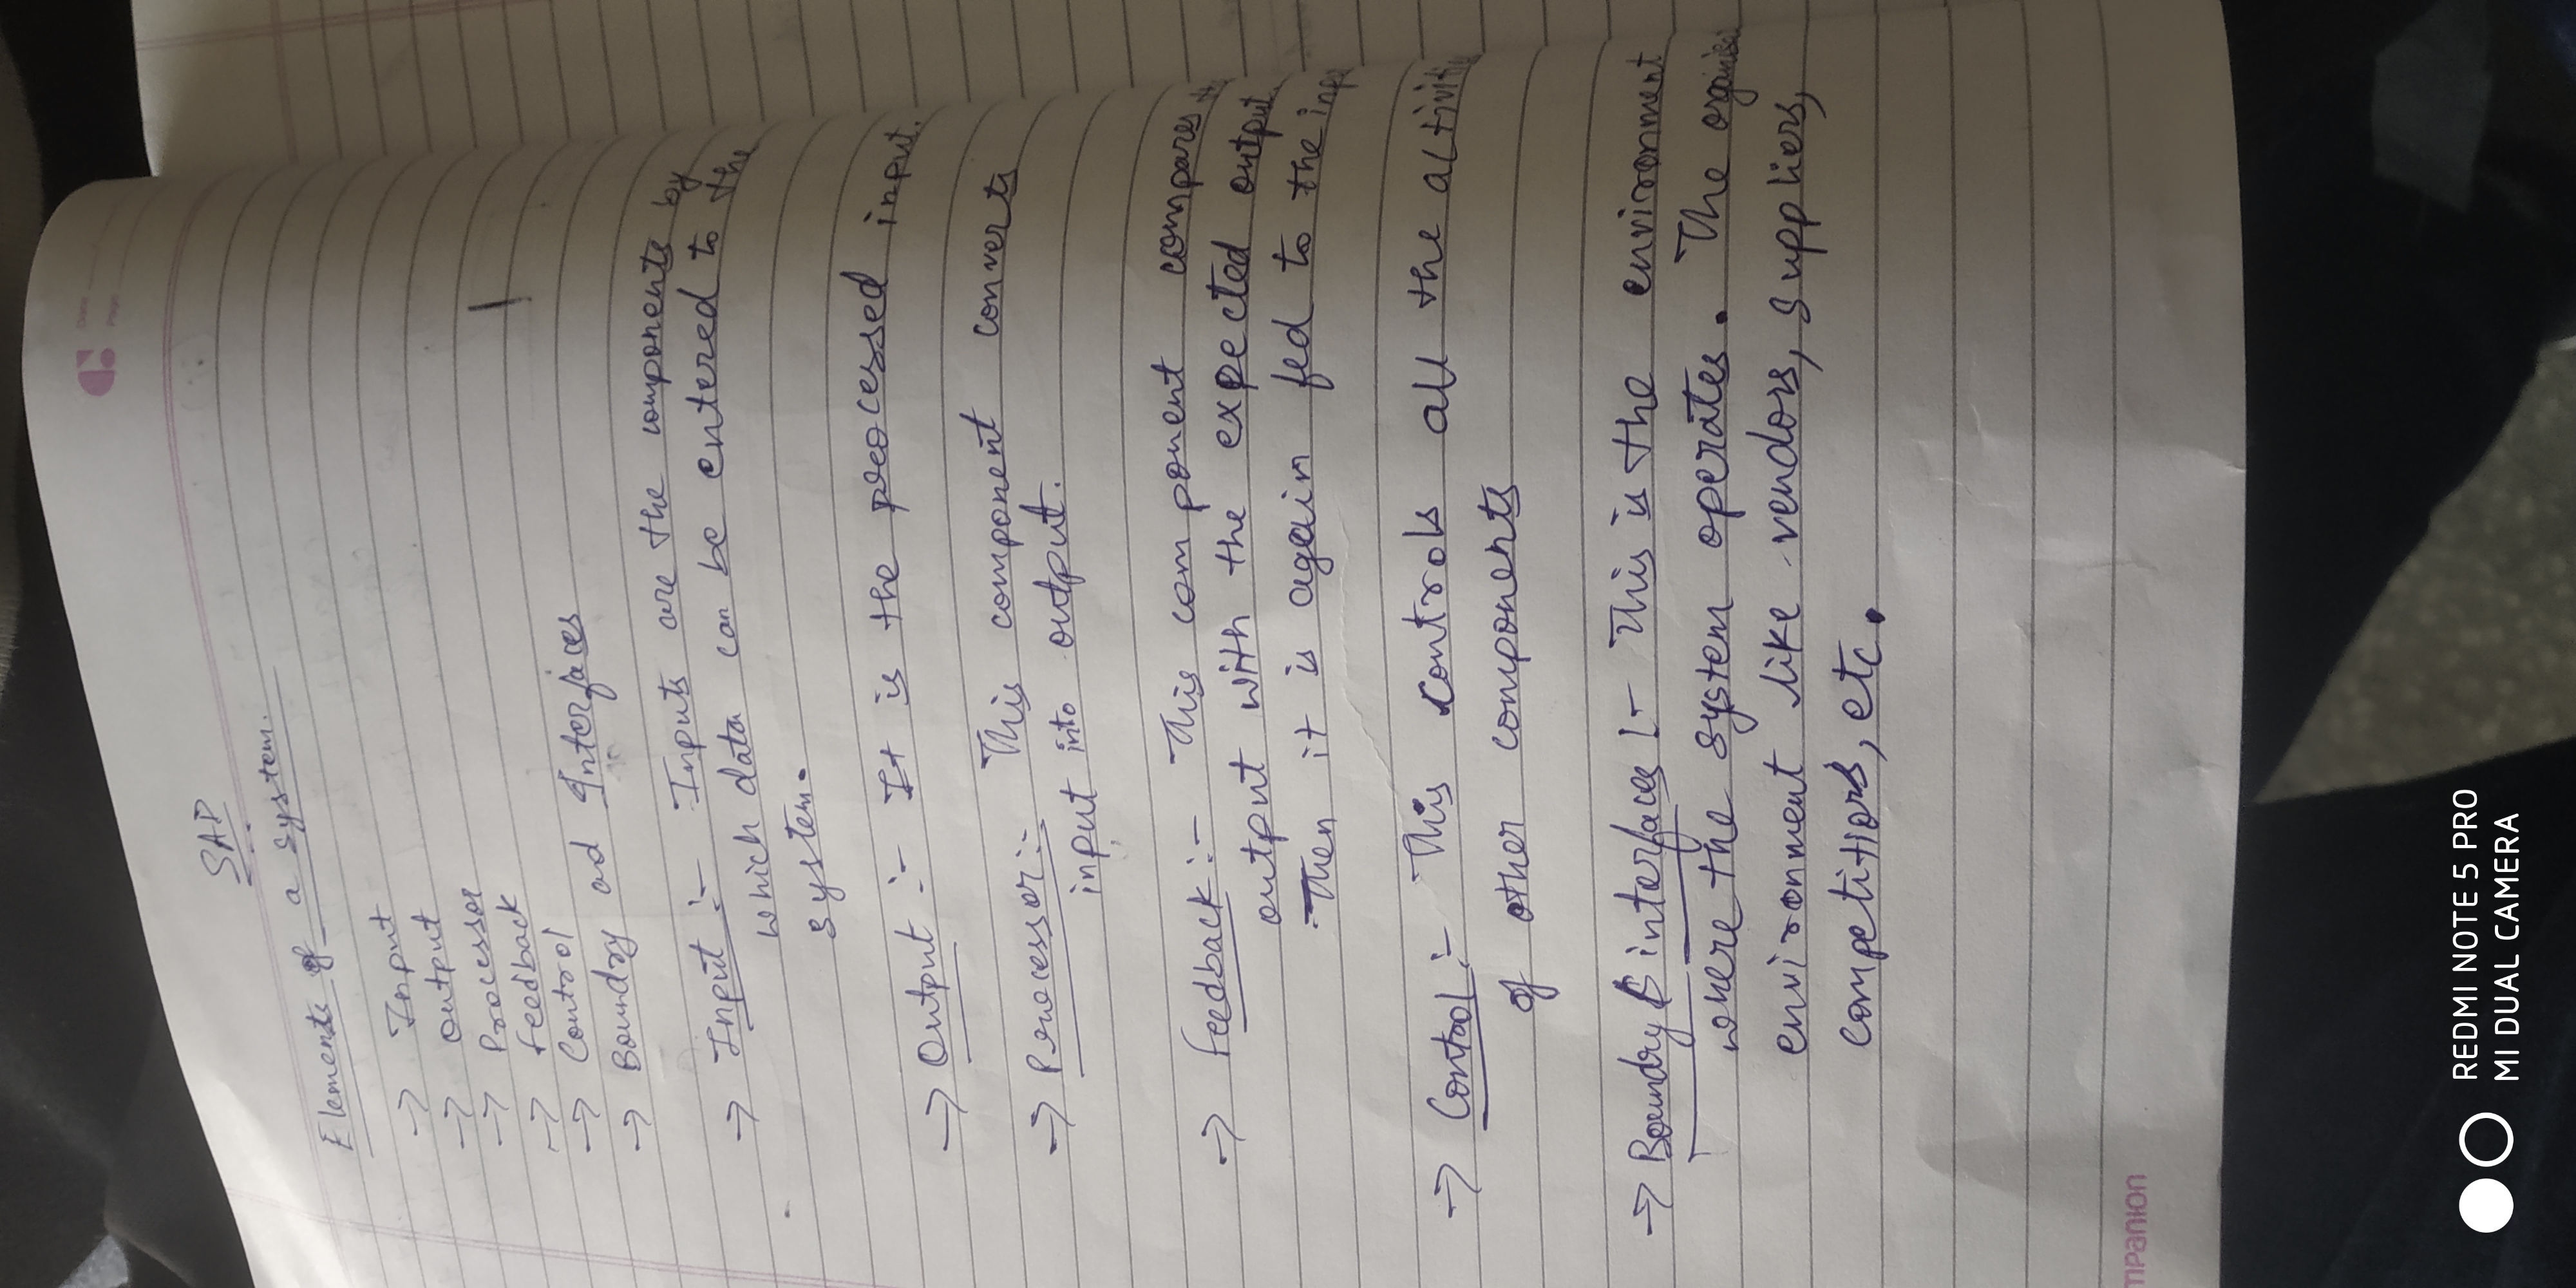 Date
Page
SAD
Elements of a system.
→ Input
→ output
→ Processor
→ feedback
→ Control
→ Boundry ad Interfaces
→ Input :- Inputs are the components by
which data can be entered to the
system.
→ Output :- It is the processed input.
→ Processor :- This component converts
input into output.
→ feedback :- This component compares
output with the expected output.
Then it is again fed to the
→ Control :- This controls all the
of other components
→ Boundry & interfaces :- This is the environment
where the system operates. The
environment like vendors, suppliers,
competitiors, etc.
mpanion
REDMI NOTE 5 PRO
MI DUAL CAMERA